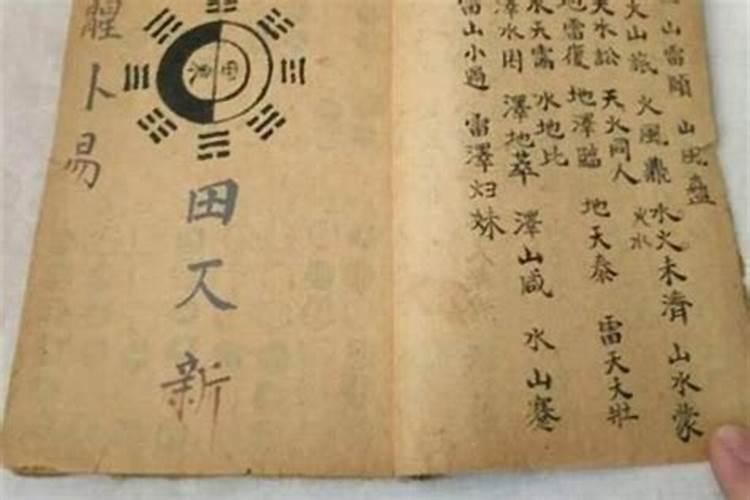 山雷頤 山風蠱
火山旅 火風鼎 火水 水火未濟 山水蒙
天水訟 天火同人
地雷復 地澤臨 地天泰 雷天大壯
水天需 水地比
澤水困 澤地萃 澤山咸 水山蹇
雷山小過 雷澤归妹
田仄新
卜易